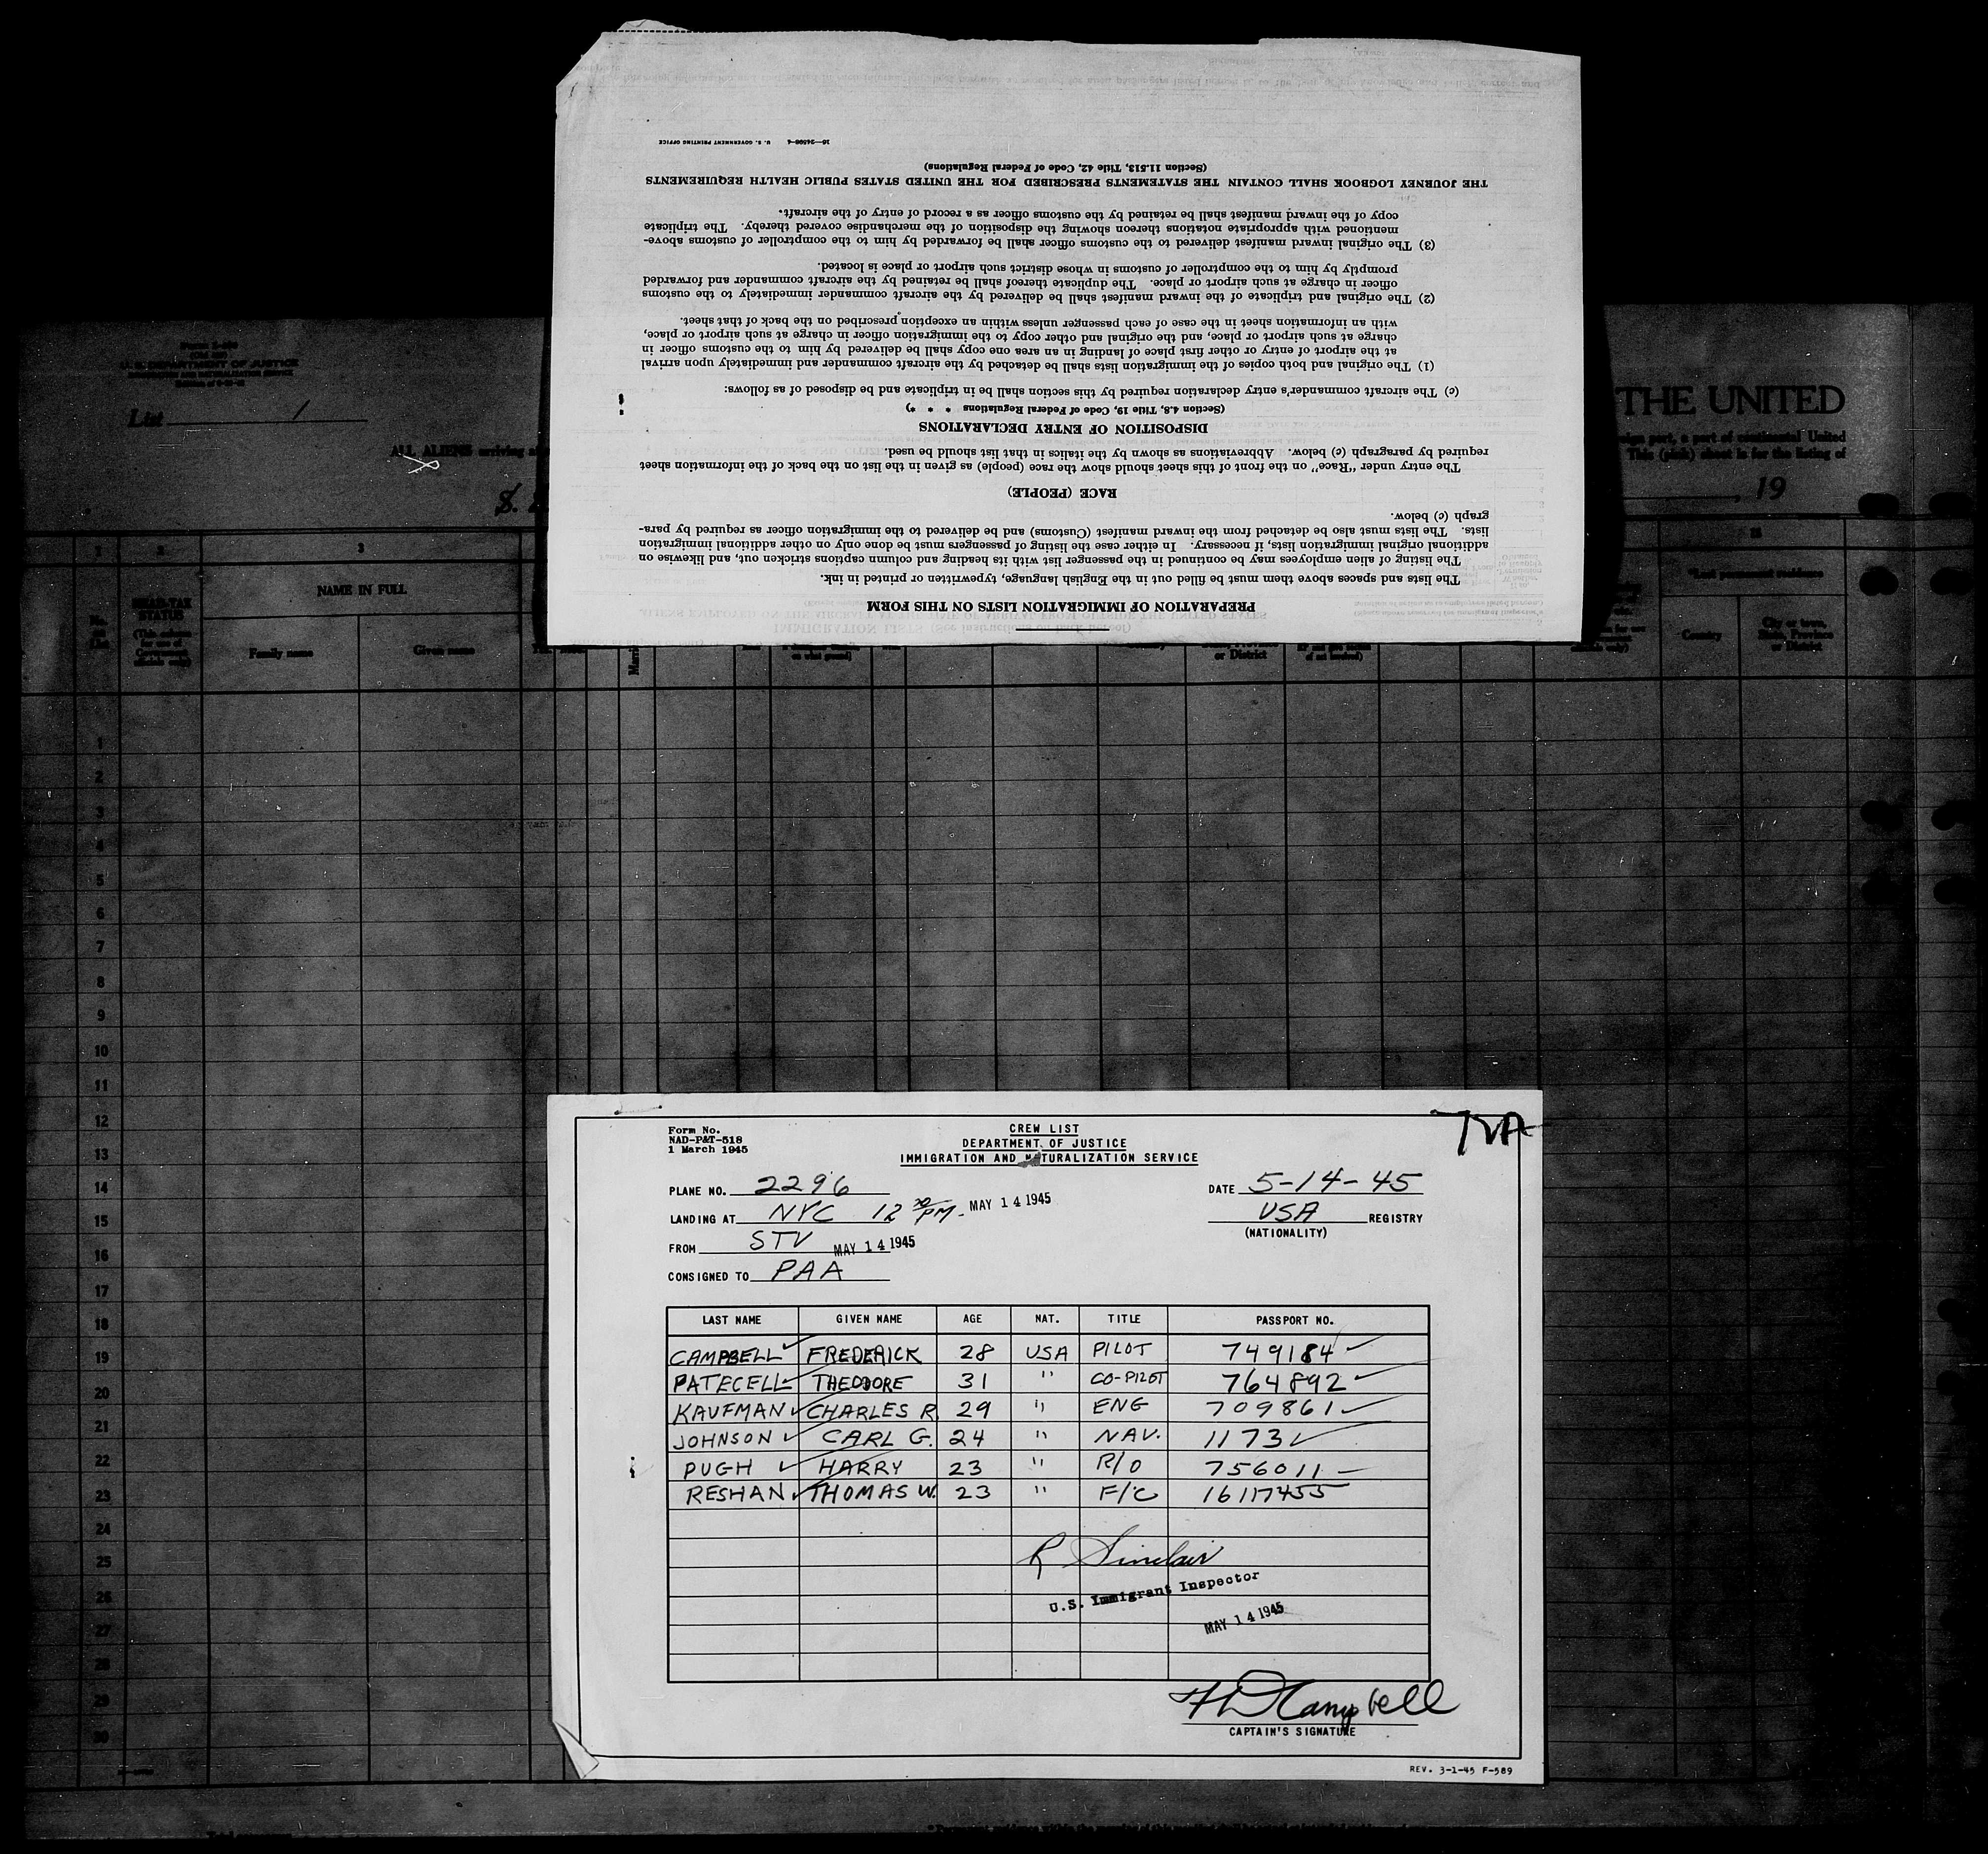 16—24908-4 U. S. GOVERNMENT PRINTING OFFICE
(Section 11.513, Title 42, Code of Federal Regulations)
THE JOURNEY LOGBOOK SHALL CONTAIN THE STATEMENTS PRESCRIBED FOR THE UNITED STATES PUBLIC HEALTH REQUIREMENTS
copy of the inward manifest shall be retained by the customs officer as a record of entry of the aircraft.
mentioned with appropriate notations thereon showing the disposition of the merchandise covered thereby. The triplicate
(3) The original inward manifest delivered to the customs officer shall be forwarded by him to the comptroller of customs above-
promptly by him to the comptroller of customs in whose district such airport or place is located.
officer in charge at such airport or place. The duplicate thereof shall be retained by the aircraft commander and forwarded
(2) The original and triplicate of the inward manifest shall be delivered by the aircraft commander immediately to the customs
with an information sheet in the case of each passenger unless within an exception prescribed on the back of that sheet.
charge at such airport or place, and the original and other copy to the immigration officer in charge at such airport or place,
at the airport of entry or other first place of landing in an area one copy shall be delivered by him to the customs officer in
(1) The original and both copies of the immigration lists shall be detached by the aircraft commander and immediately upon arrival
(c) The aircraft commander's entry declaration required by this section shall be in triplicate and be disposed of as follows:
(Section 4.8, Title 19, Code of Federal Regulations * * *)
DISPOSITION OF ENTRY DECLARATIONS
required by paragraph (c) below. Abbreviations as shown by the italics in that list should be used.
The entry under "Race" on the front of this sheet should show the race (people) as given in the list on the back of the information sheet
RACE (PEOPLE)
graph (c) below.
lists. The lists must also be detached from the inward manifest (Customs) and be delivered to the immigration officer as required by para-
additional original immigration lists, if necessary. In either case the listing of passengers must be done only on other additional immigration
The listing of alien employees may be continued in the passenger list with its heading and column captions stricken out, and likewise on
The lists and spaces above them must be filled out in the English language, typewritten or printed in ink.
PREPARATION OF IMMIGRATION LISTS ON THIS FORM
U. S. DEPARTMENT OF JUSTICE
List 1
THE UNITED
eign port, a part of continental United
This (pink) sheet is for the listing of
ALL ALIENS arriving
, 19
1 2 3
NAME IN FULL
Family name Given name
HEAD-TAX STATUS
*Last permanent residence
Country
City or town, State, Province or District
or District
1
2
3
4
5
6
7
8
9
10
11
12
13
14
15
16
17
18
19
20
21
22
23
24
25
26
27
28
29
30
Form No.
NAD-P&T-518
1 March 1945
CREW LIST
DEPARTMENT OF JUSTICE
IMMIGRATION AND NATURALIZATION SERVICE
PLANE NO. 2296
DATE 5-14-45
LANDING AT NYC 12 30 PM. MAY 14 1945
USA REGISTRY
(NATIONALITY)
FROM STV MAY 14 1945
CONSIGNED TO PAA
LAST NAME GIVEN NAME AGE NAT. TITLE PASSPORT NO.
CAMPBELL FREDERICK 28 USA PILOT 749184
PATECELL THEODORE 31 " CO-PILOT 764892
KAUFMAN CHARLES R. 29 " ENG 709861
JOHNSON CARL G. 24 " NAV. 1173
PUGH HARRY 23 " R/O 756011
RESHAN THOMAS W. 23 " F/C 16117455
R Sinclair
U.S. Immigrant Inspector
MAY 14 1945
Campbell
CAPTAIN'S SIGNATURE
REV. 3-1-45 F-589